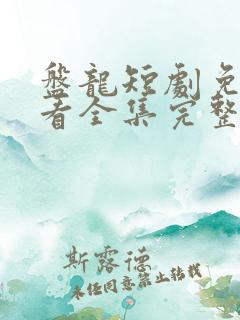 盤龍短劇免
看全集完整
斯露德
未经同意禁止转载